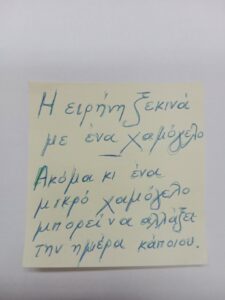 Η ειρήνη ξεκινά
με ένα χαμόγελο
Ακόμα κι ένα
μικρό χαμόγελο
μπορεί να αλλάξει
την ημέρα κάποιου.